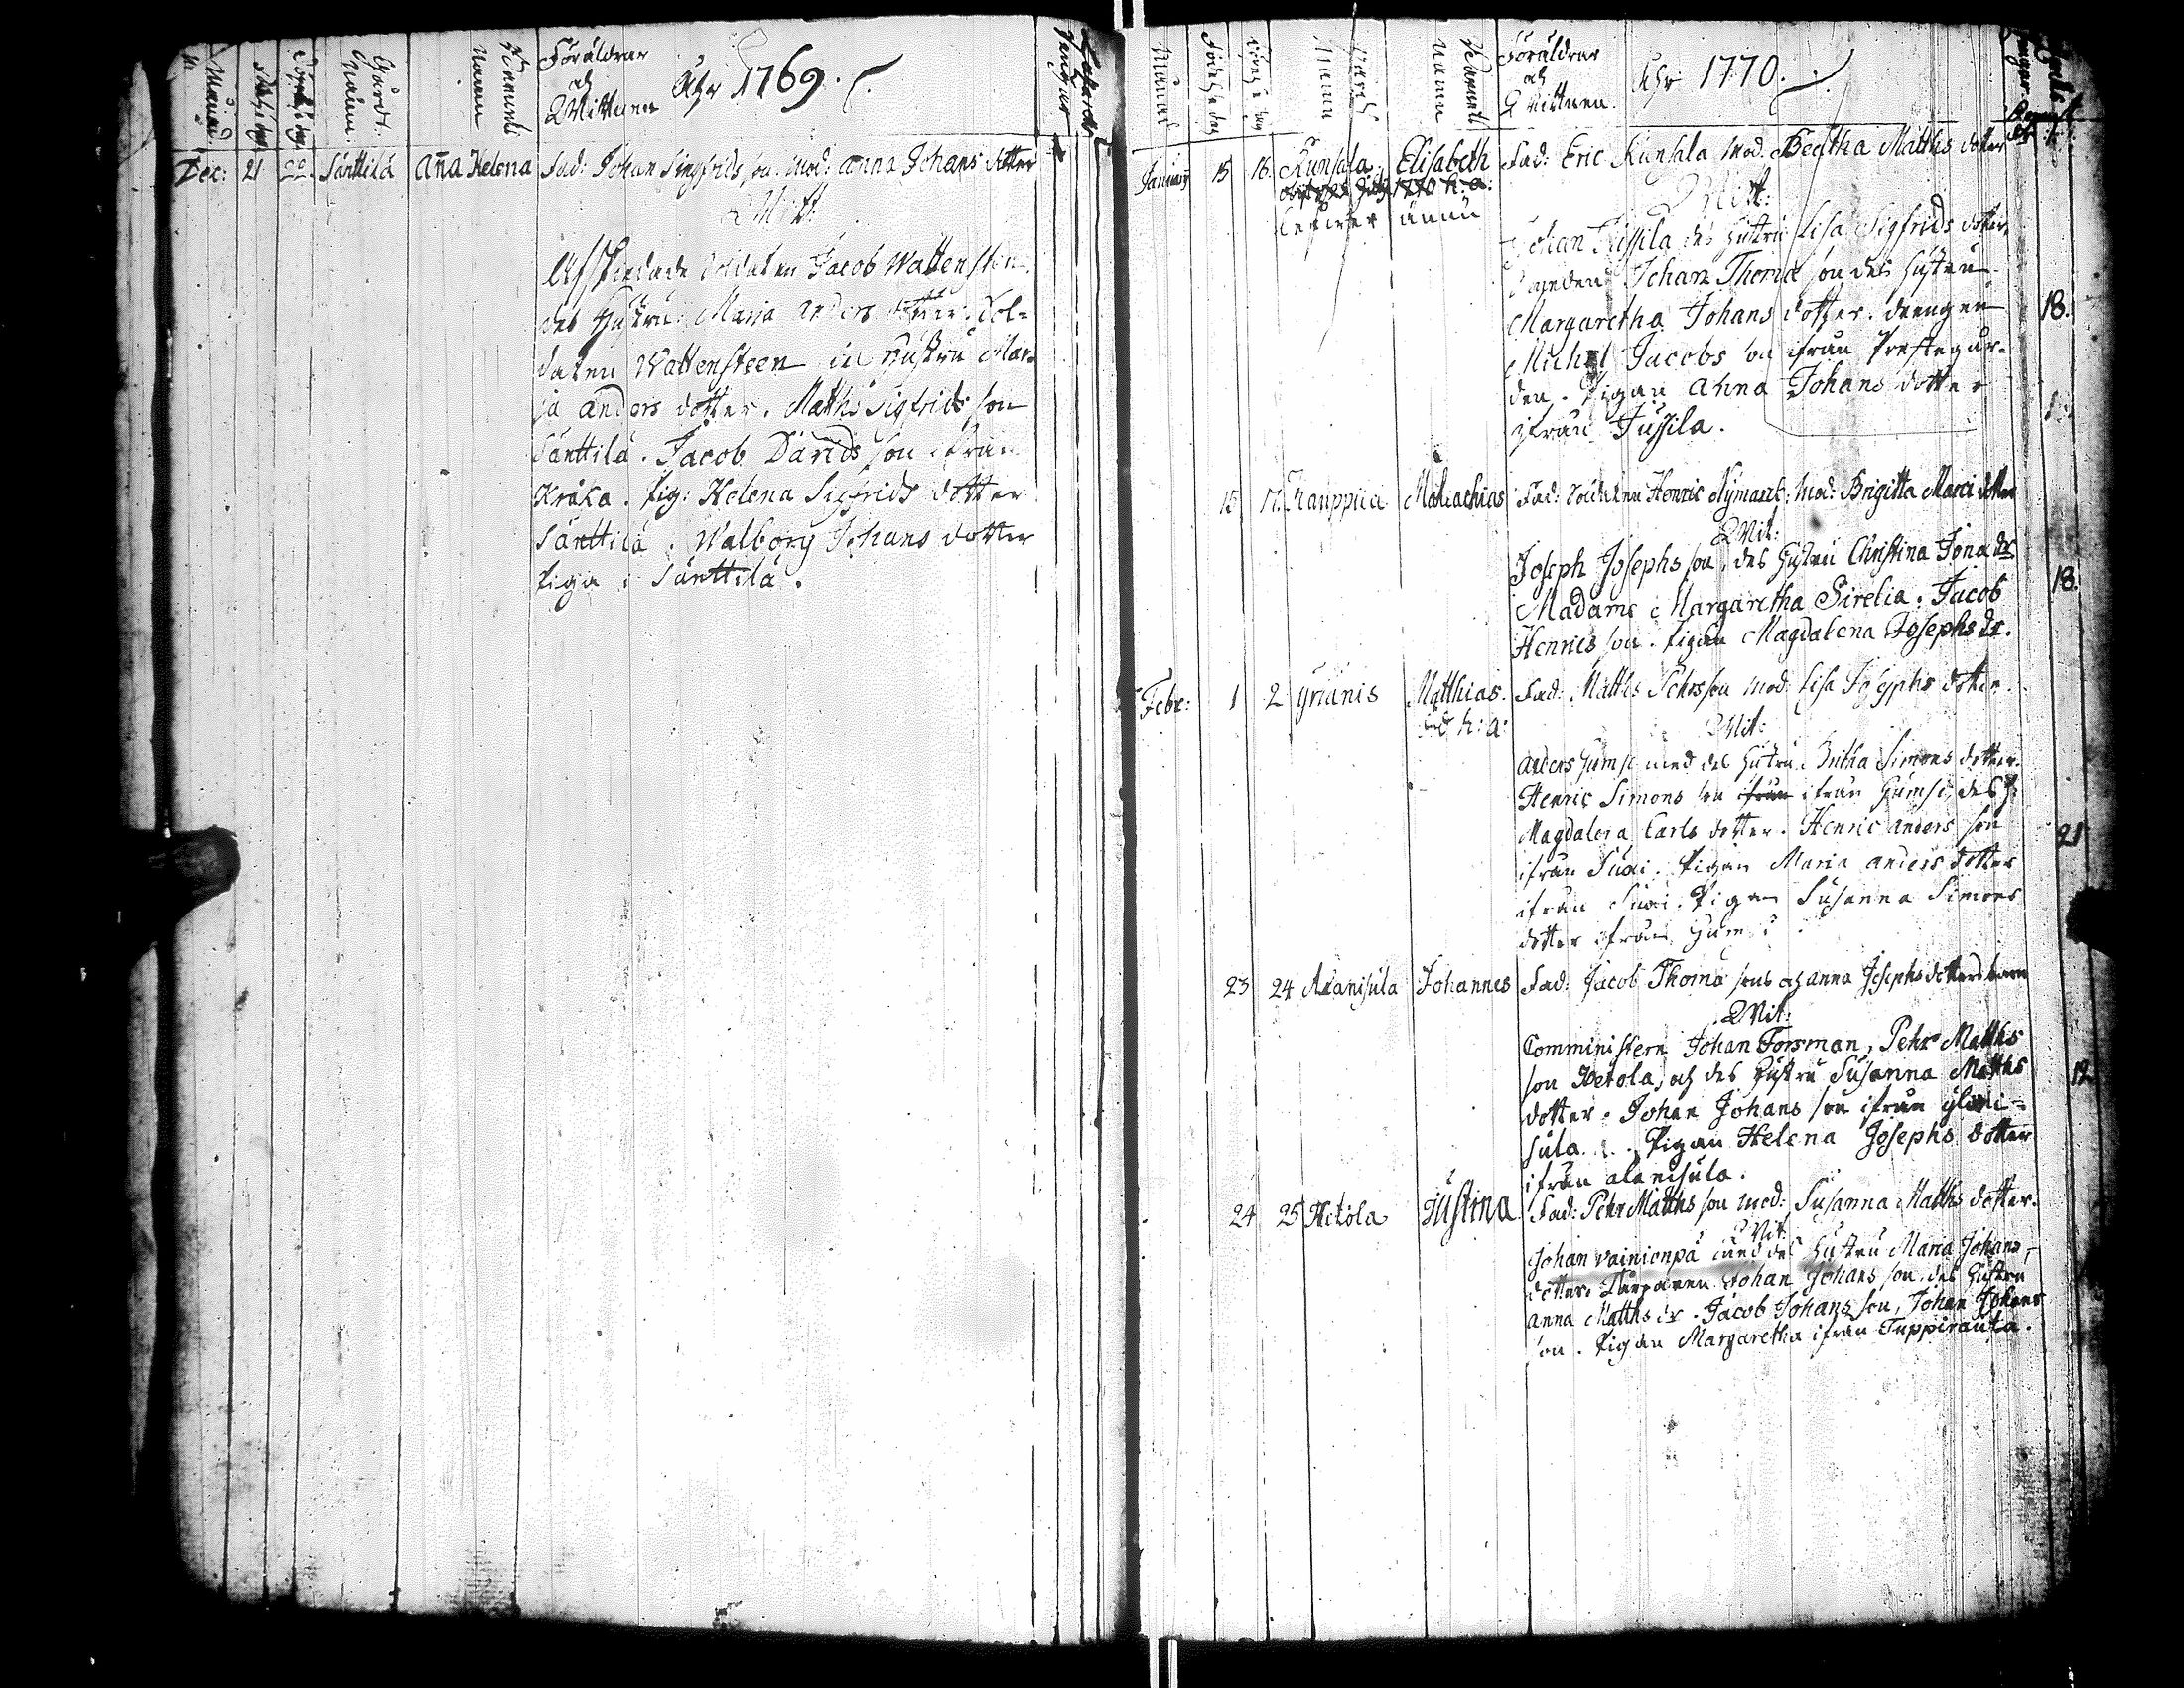 Månad
Döpelse dag
Gårds Namn
Barnets namn
Föräldrar
och
Wittnen
Åhr 1769.
Dec: 21 22. Sänttilä Anna Helena Fad: Johan Sigfrids son mod: Anna Johans dotter
Witt:
Afskedade Soldaten Jacob Wattensten
des Hustru Maria Anders dotter. Sol=
daten Wattensteen Hustru Mar=
ja Anders dotter. Matths Sigfrids son
Sänttilä. Jacob Davids son ifrån
Kråka. Pig: Helena Sigfrids dotter
Sänttilä. Walborg Johans dotter
Piga i Sänttilä.
Månad
Födelse dag
Barnets
namn
Föräldrar
och
Wittnen.
Åhr 1770.
Januari 15 16. Kunsala Elisabeth Fad: Eric Kunsala Mod: Beatha Matths dotter
1770 h: a:
lefwer ännu
Witt:
Johan Jussila des Hustru Lisa Sigfrids dotter,
Johan Thomæ son des Hustru
Margaretha Johans dotter. drengen 18.
Michel Jacobs son ifrån Prestegår-
den. Pigan Anna Johans dotter
ifrån Jussila.
15 17. Kauppila Malachias Fad: Soldaten Henric Nymark: Mod: Brigitta Marci dotter
Wit:
Joseph Josephs son, des Hustru Christina Jona dr
Madame Margaretha Sirelia. Jacob 18.
Henrics son. Pigan Magdalena Josephs dr.
Febr: 1 2 Yrjänis Matthias. Fad: Matths Pehrs son Mod: Lisa Josephs dotter.
h: a:
Wit:
Anders Humsi med des Hustru Britha Simons dotter.
Henric Simons son ifrån ifrån Humsi, des H:
Magdalena Carls dotter. Henric Anders son 21
ifrån Suai. Pigan Maria Anders dotter
ifrån Suai. Pigan Susanna Simons
dotter ifrån Humsi
23 24 Alanisula Johannes Fad: Jacob Thomæ sons och Anna Josephs dotters barn
Wit:
Comministern Johan Forsman, Pehr Matths
son Hetola, och des Hustru Susanna Matths 12
dotter. Johan Johans son ifrån Ylini=
sula. Pigan Helena Josephs dotter
ifrån Alanisula.
24 25 Hetola Justina Fad: Pehr Matths son Mod: Susanna Matths dotter.
Wit:
Johan Vainionpä med des Hustru Maria Johans-
dotter. Johan Johans son, des Hustru
Anna Matths dr. Jacob Johans son, Johan Johans
son. Pigan Margaretha ifrån Tuppiranta.